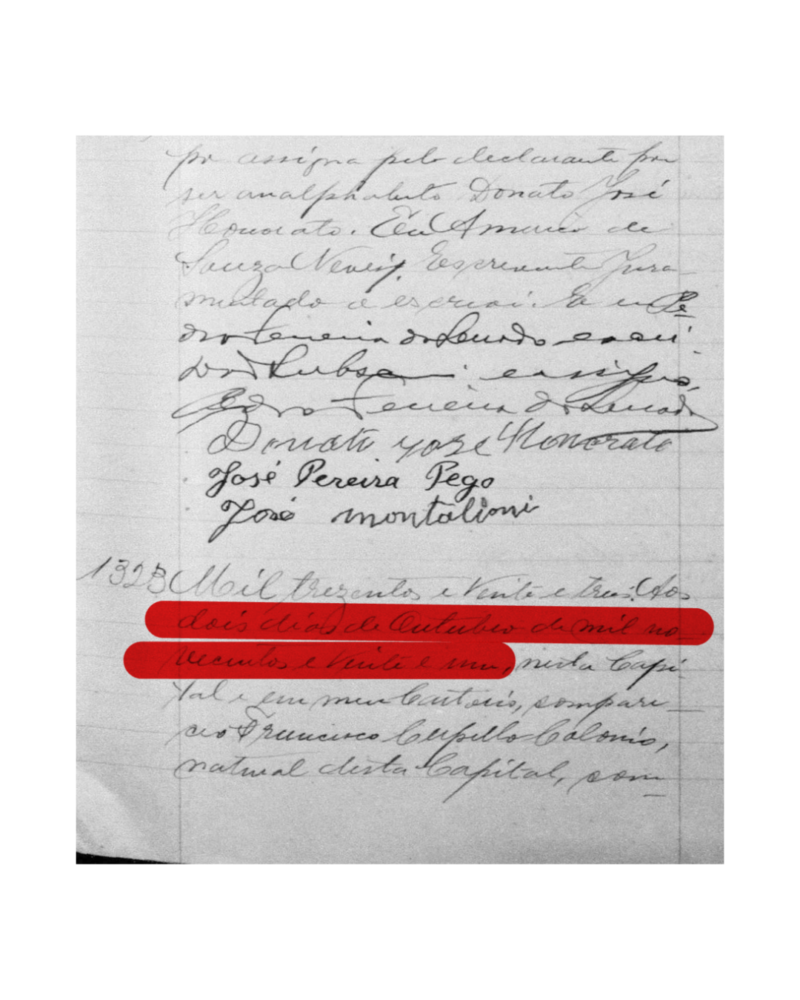 por assigna pelo declarante por
ser analphabeto Donato José
Honorato. Eu Amaro de
Souza Neves, Escrevente Jura
mentado o escrevi. E eu Pe
dro Ferreira do Senado
subscrevi e assigno,
Pedro Ferreira do Senado
Donato José Honorato
José Pereira Pego
José montalioni
1323 Mil trezentos e Vinte e tres. Aos
dois dias de Outubro de mil no
vecentos e Vinte e um, nesta Capi
tal e em meu Cartorio, compare
ceo Francisco Cupello Colonio,
natural desta Capital, com